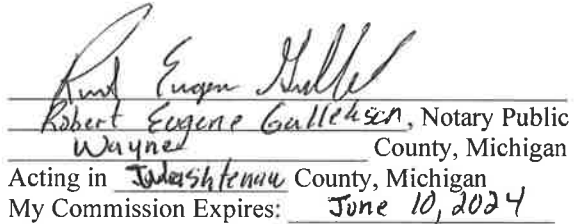 Robert Eugene Gullekson, Notary Public
Wayne County, Michigan
Acting in Washtenaw County, Michigan
My Commission Expires: June 10, 2024